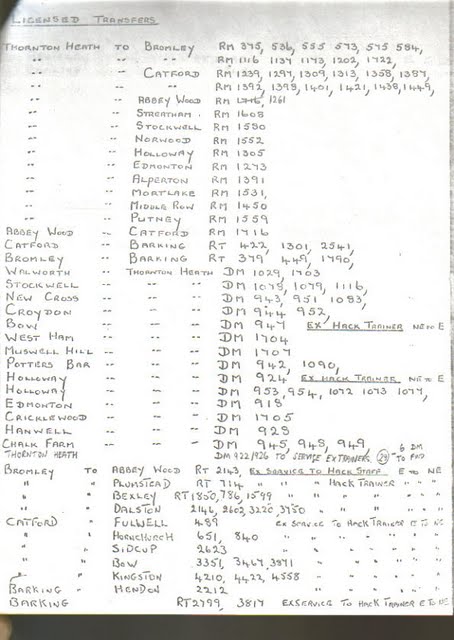 LICENSED TRANSFERS
THORNTON HEATH TO BROMLEY RM 375, 536, 555 573, 575 584,
" " " RM 1116 1137 1173, 1202, 1722,
" " CATFORD RM 1239, 1297, 1309, 1313, 1358, 1387,
" " " RM 1392, 1398, 1401, 1421, 1438, 1449,
" " ABBEY WOOD RM 1716, 1261
" " STREATHAM RM 1608
" " STOCKWELL RM 1530
" " NORWOOD RM 1552
" " HOLLOWAY RM 1305
" " EDMONTON RM 1273
" " ALPERTON RM 1391
" " MORTLAKE RM 1531,
" " MIDDLE ROW RM 1450
" " PUTNEY RM 1559
ABBEY WOOD " CATFORD RM 1716
CATFORD " BARKING RT 422, 1301, 2541,
BROMLEY " BARKING RT 379, 449, 1790,
WALWORTH " THORNTON HEATH DM 1029, 1703
STOCKWELL " " " DM 1078, 1079, 1116,
NEW CROSS " " " DM 943, 951 1083,
CROYDON " " " DM 944 952,
BOW " " " DM 947 EX HACK TRAINER NE TO E
WEST HAM " " " DM 1704
MUSWELL HILL " " " DM 1707
POTTERS BAR " " " DM 942, 1090,
HOLLOWAY " " " DM 924 EX HACK TRAINER NE TO E
HOLLOWAY " " " DM 953, 954, 1072 1073 1077,
EDMONTON " " " DM 918
CRICKLEWOOD " " " DM 1705
HANWELL " " " DM 928
CHALK FARM " " " DM 945, 948, 949, 6 DM
THORNTON HEATH DM 922/926 TO SERVICE EX TRAINERS (29) TO FWD
BROMLEY TO ABBEY WOOD RT 2143, EX SERVICE TO HACK STAFF E TO NE
" " PLUMSTEAD RT 714 " " " HACK TRAINER " " "
" " BEXLEY RT 1850, 786, 1599 " " " " " " "
" " DALSTON 2146, 2602, 3220, 3750 " " " " " "
CATFORD " FULWELL 489 EX SERVICE TO HACK TRAINER E TO NE
" " HORNCHURCH 651, 840 " " " " " "
" " SIDCUP 2623 " " " " " "
" " BOW 3351, 3467, 3871 " " " " " "
" " KINGSTON 4210, 4422, 4558 " " " " " "
BARKING " HENDON 2212 " " " " " "
BARKING RT 2799, 3817 EX SERVICE TO HACK TRAINER E TO NE